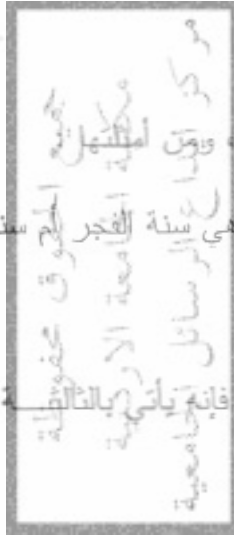 ومن أمثلتها
هي سنة الفجر ثم سنة
فإنه يأتي بالثالثـــة
جميع الحقوق محفوظة
مكتبة الجامعة الاردنية
مركز ايداع الرسائل الجامعية